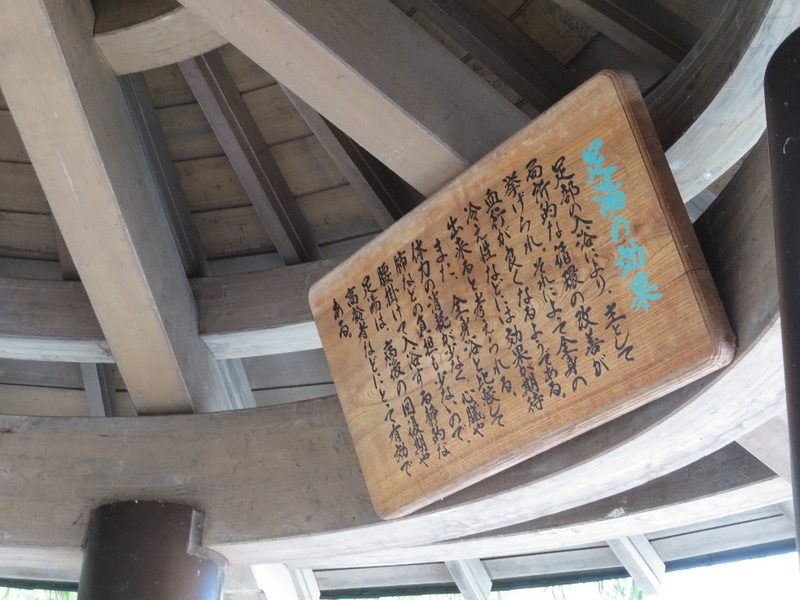 足湯の効果
足部の入浴により、主として
局所的な循環の改善が
挙げられ、それによって全身の
血行が良くなるようである。
冷え症などには効果が期待
出来ると考えられる。
また、全身浴と比較して
体力の消耗が少なく、心臓や
肺などの負担も少ないので、
腰掛けて入浴する静的な
足湯は、病後の回復期や
高齢者などにとって有効で
ある。